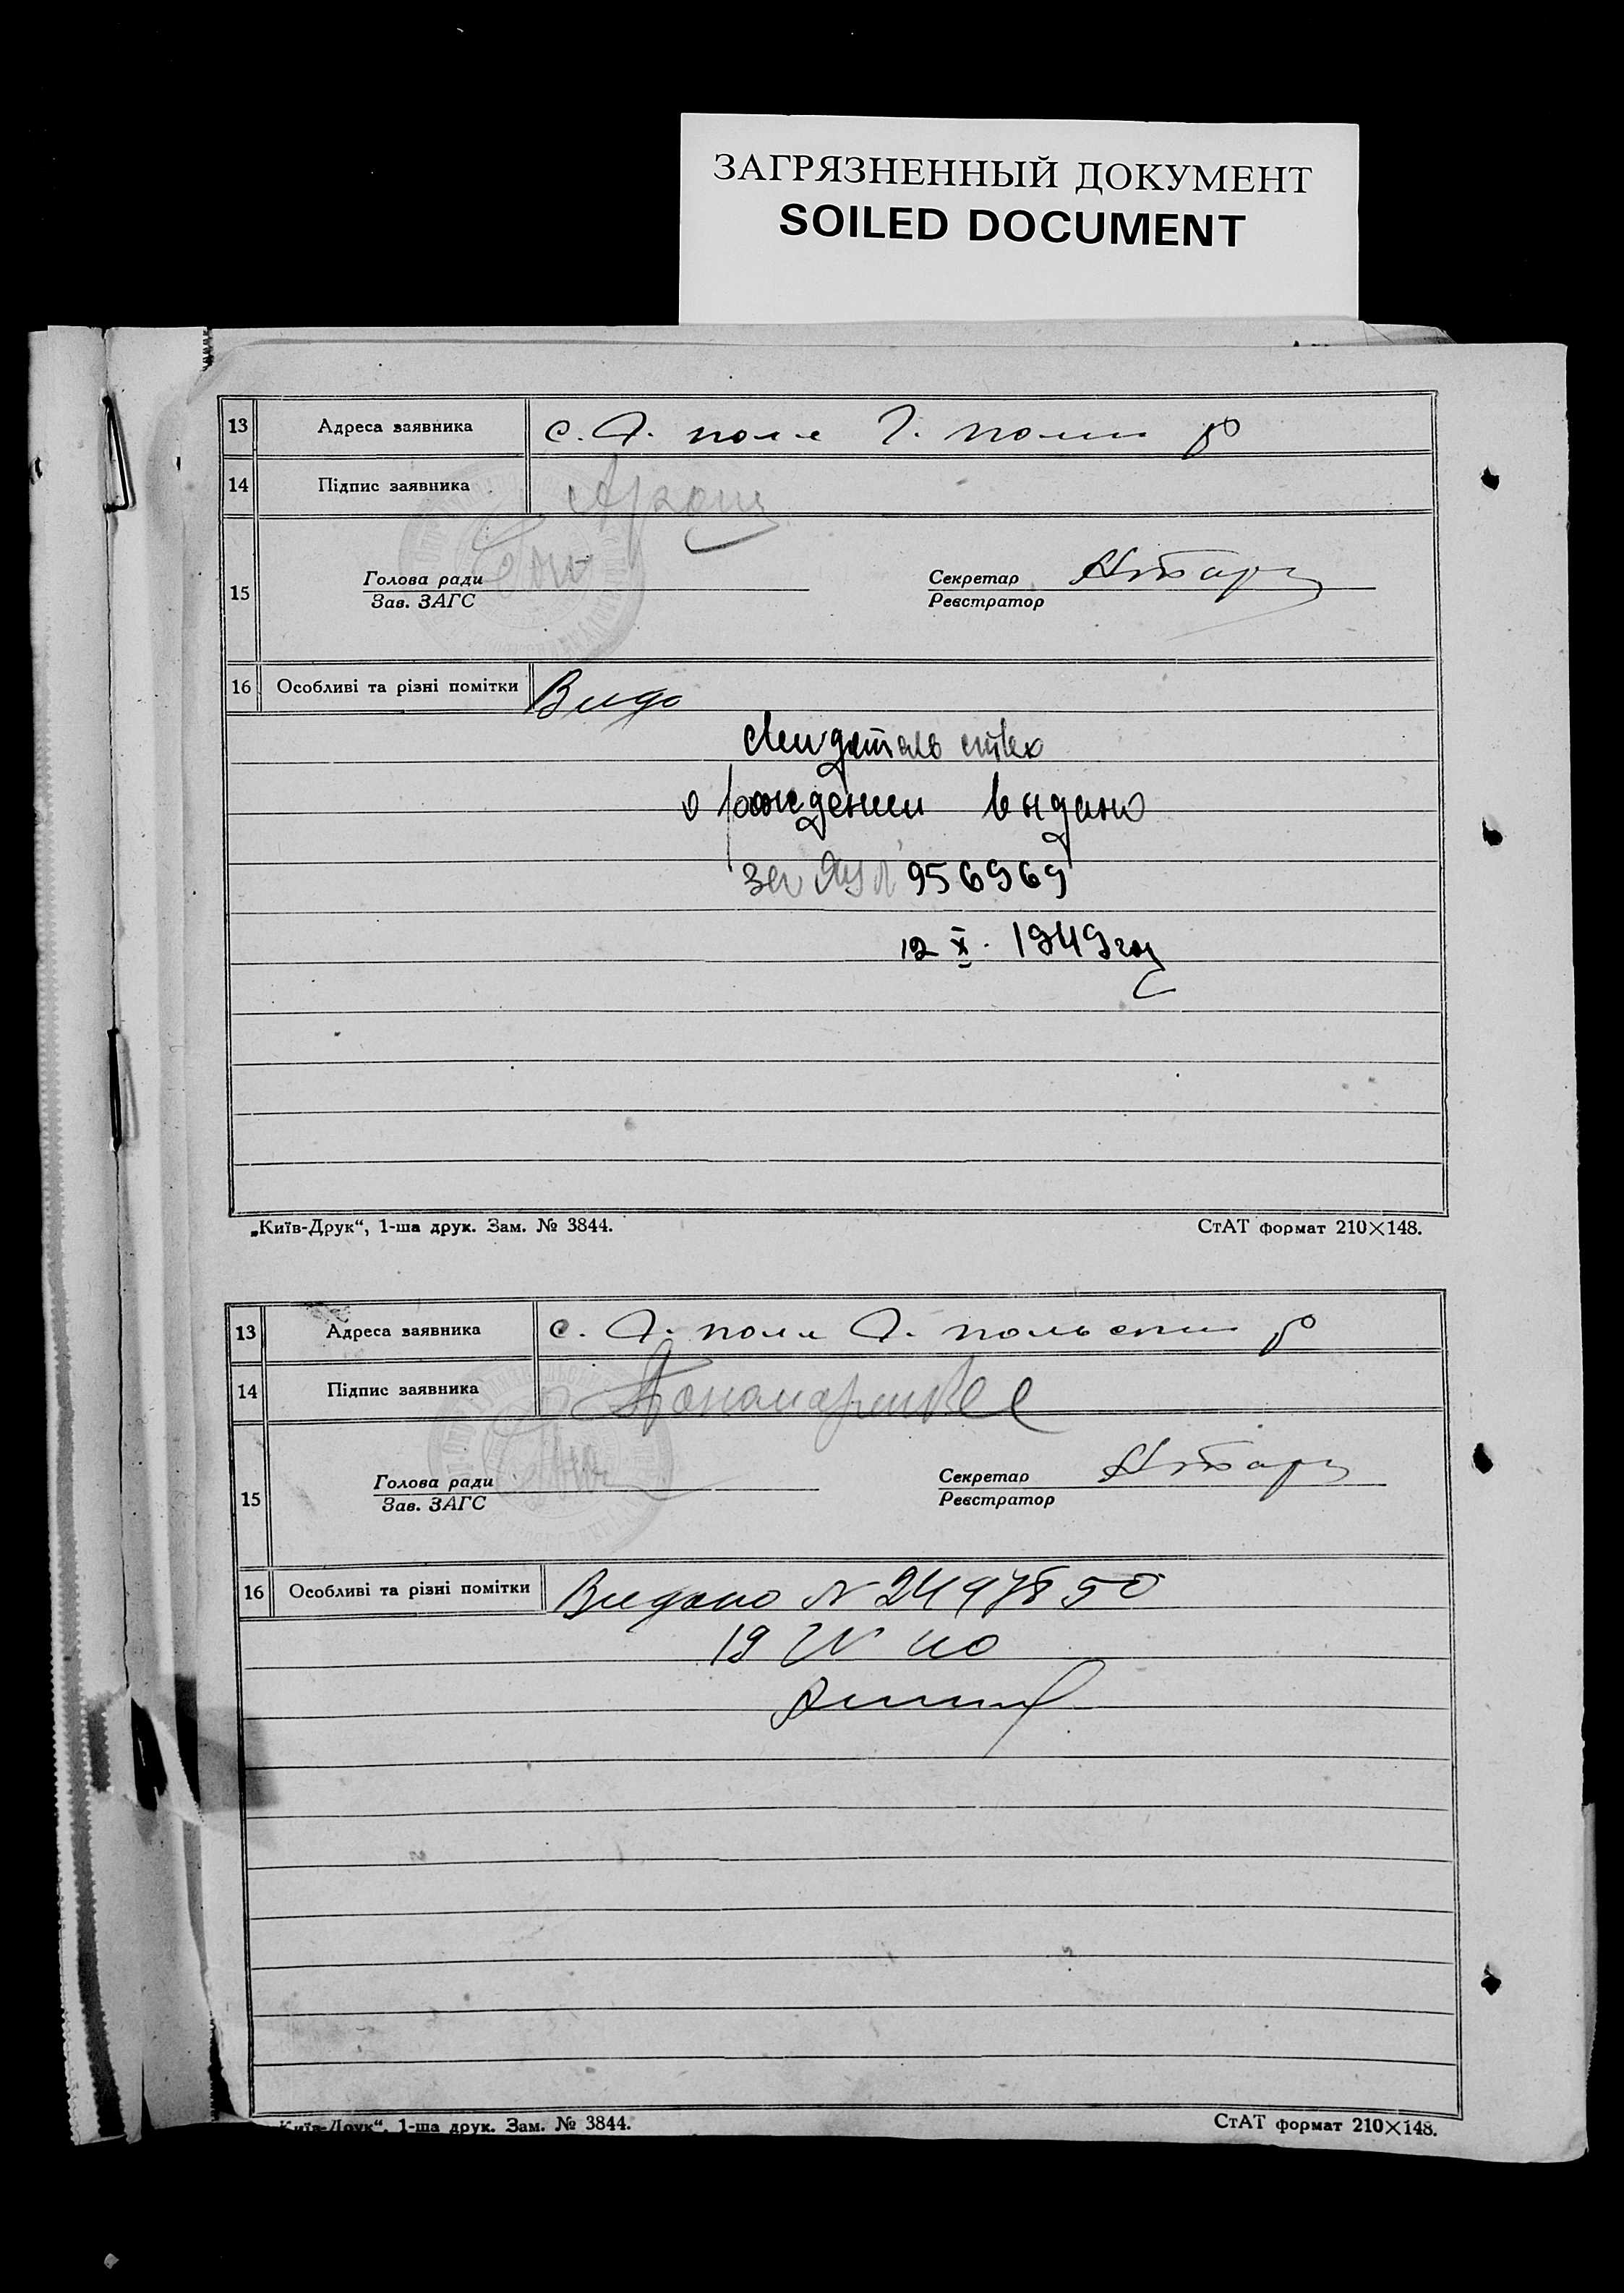 ЗАГРЯЗНЕННЫЙ ДОКУМЕНТ
SOILED DOCUMENT
13 Адреса заявника с. Я. поле
14 Підпис заявника
15 Голова ради Секретар
Зав. ЗАГС Реєстратор
16 Особливі та різні помітки Видо
свидетельство
о рождении выдано
за ЯУ № 956969
12 X. 1949 год
„Київ-Друк“, 1-ша друк. Зам. № 3844. СтАТ формат 210×148.
13 Адреса заявника с. Я. поле Я. польский р
14 Підпис заявника Пономаренко
15 Голова ради Секретар
Зав. ЗАГС Реєстратор
16 Особливі та різні помітки Видано N 2497850
19 IV 40
Київ-Друк“, 1-ша друк. Зам. № 3844. СтАТ формат 210×148.